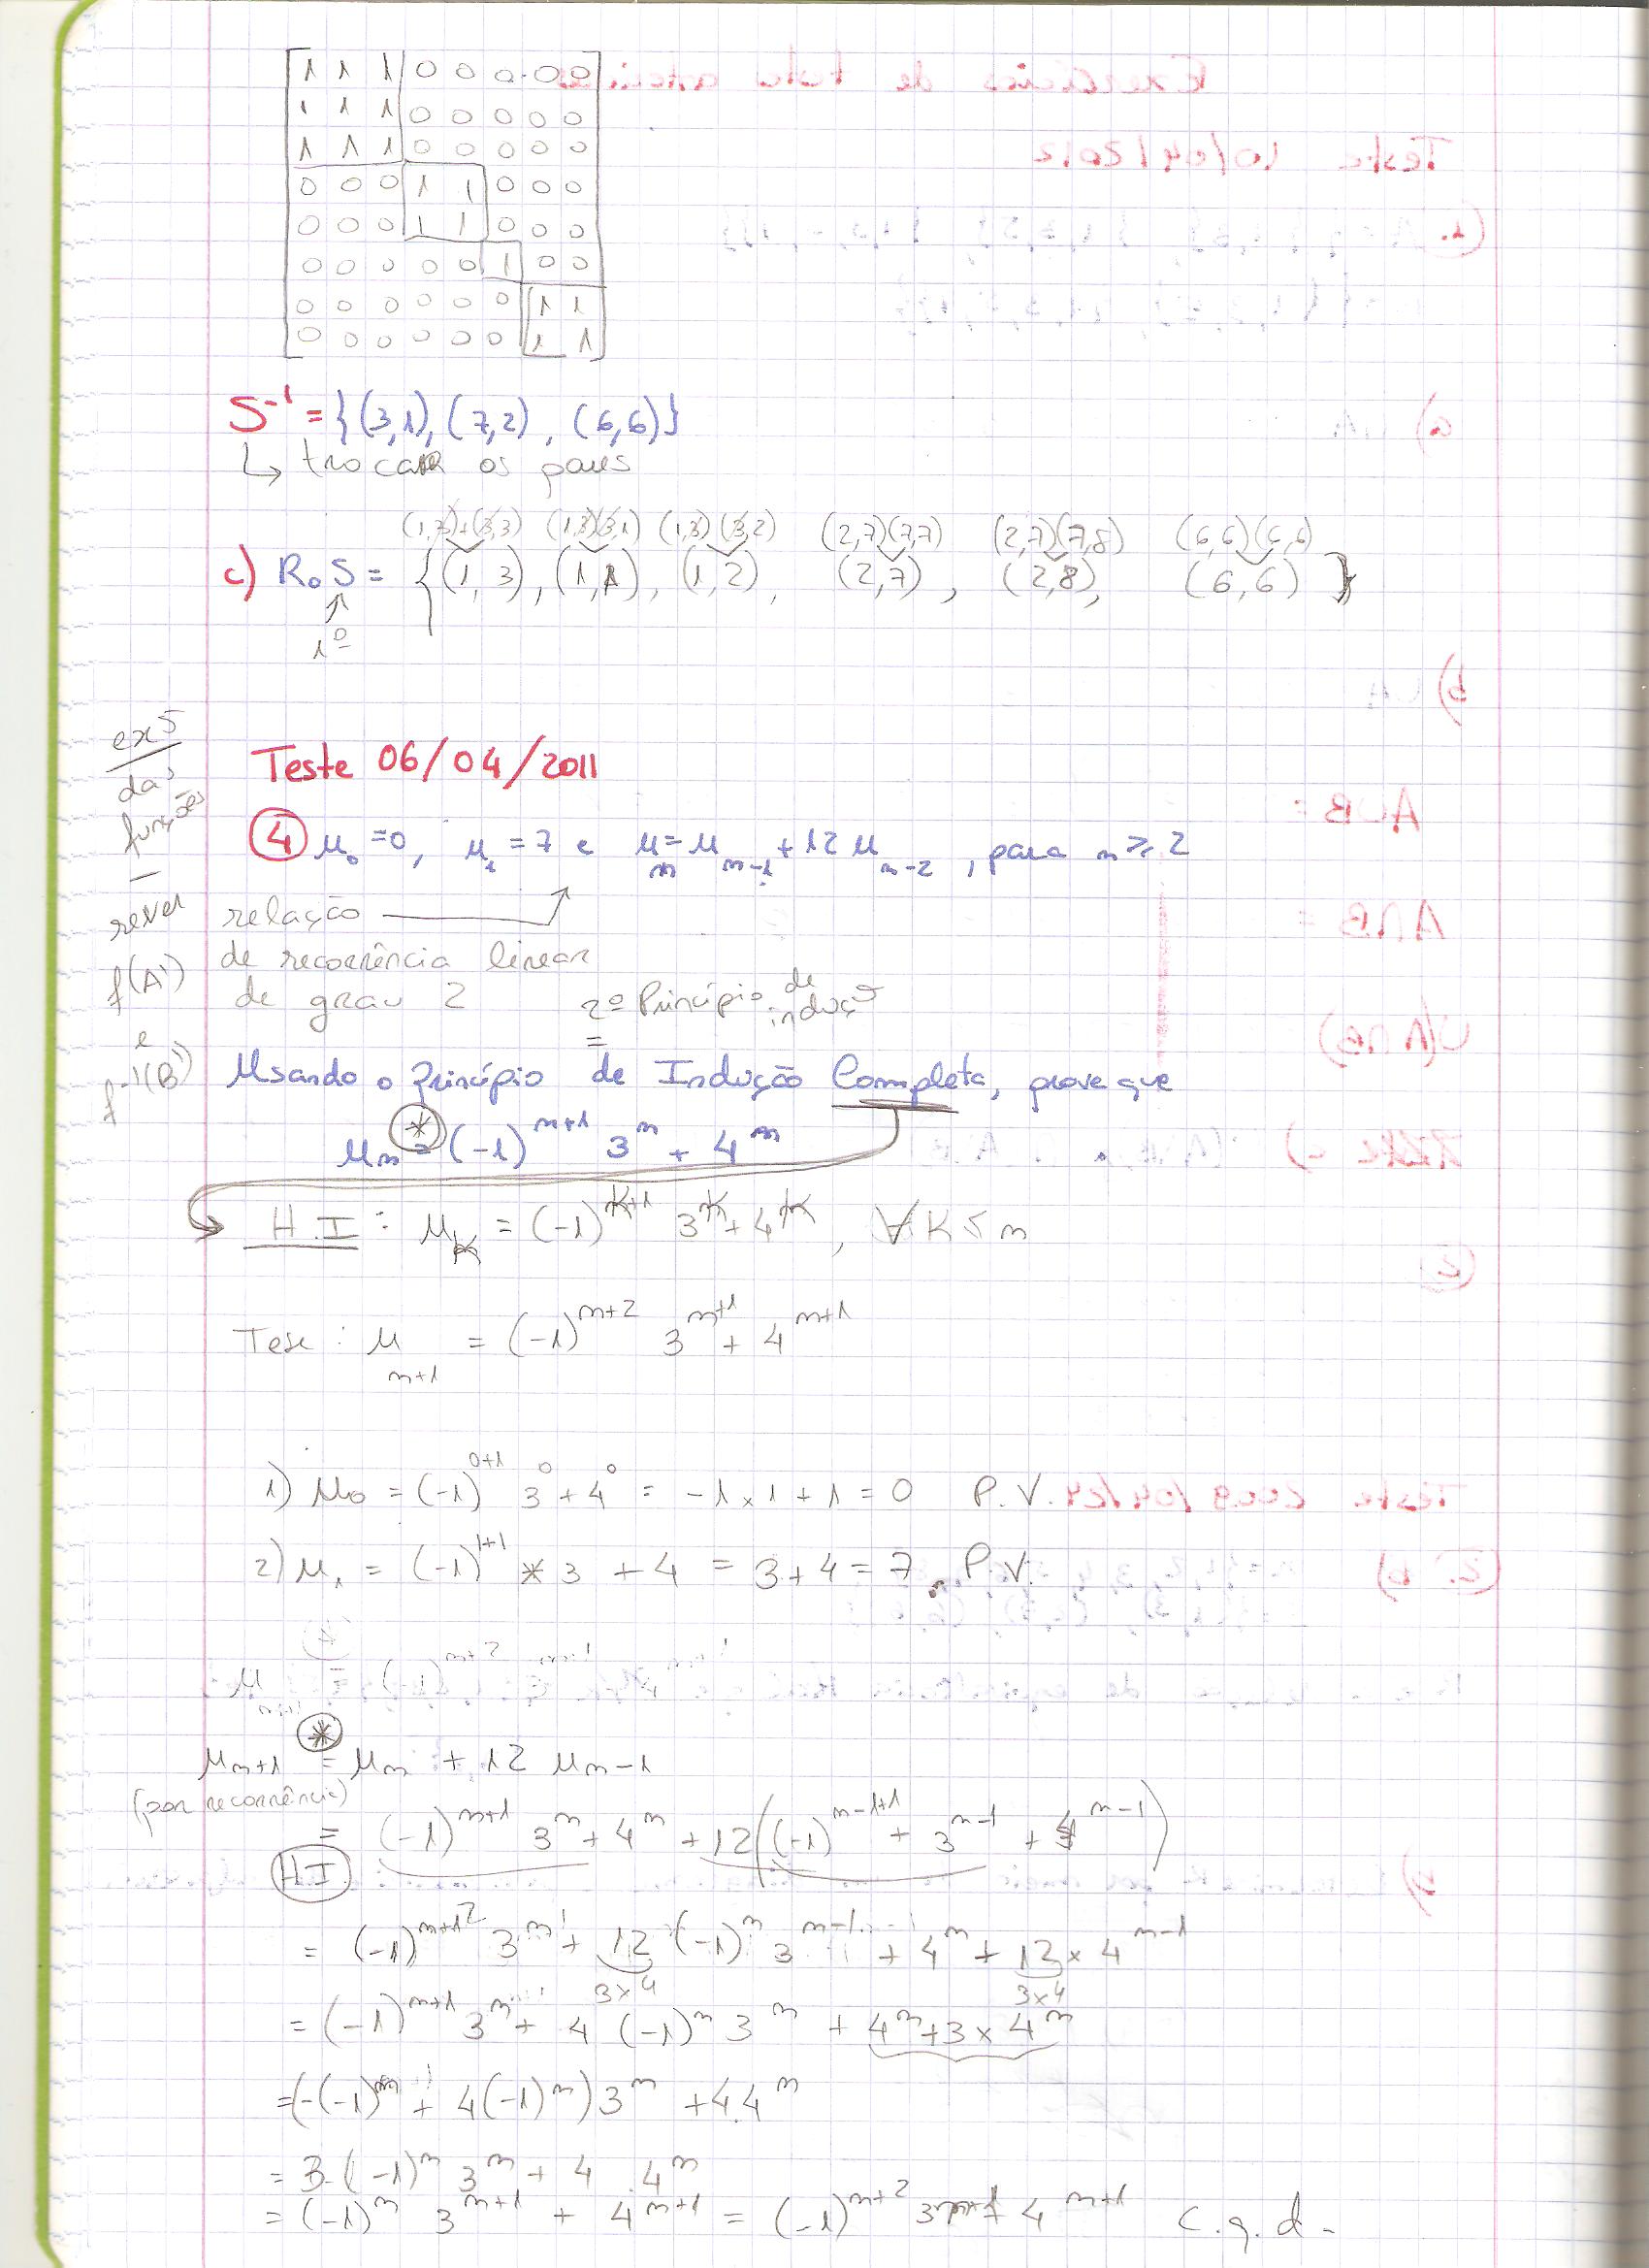 1 1 1 0 0 0 0 0
1 1 1 0 0 0 0 0
1 1 1 0 0 0 0 0
0 0 0 1 1 0 0 0
0 0 0 1 1 0 0 0
0 0 0 0 0 1 0 0
0 0 0 0 0 0 1 1
0 0 0 0 0 0 1 1
S⁻¹ = {(3,1), (7,2), (6,6)}
↳ trocar os pares
(1,3)+(3,3) (1,3)(3,1) (1,3)(3,2) (2,7)(7,7) (2,7)(7,8) (6,6)(6,6)
c) R∘S = {(1,3), (1,1), (1,2), (2,7), (2,8), (6,6)}
1º
ex 5
das
funções
—
rever
f(A')
e
f⁻¹(B')
Teste 06/04/2011
④ μ₀ = 0, μ₁ = 7 e μₙ = μₙ₋₁ + 12 μₙ₋₂, para n ≥ 2
relação
de recorrência linear
de grau 2
2º Princípio de indução
Usando o Princípio de Indução Completa, prove que
μₙ = (-1)ⁿ⁺¹ 3ⁿ + 4ⁿ
*
H.I : μₖ = (-1)ᵏ⁺¹ 3ᵏ + 4ᵏ, ∀ K ≤ n
Tese : μₙ₊₁ = (-1)ⁿ⁺² 3ⁿ⁺¹ + 4ⁿ⁺¹
1) μ₀ = (-1)⁰⁺¹ 3⁰ + 4⁰ = -1 × 1 + 1 = 0 P.V.
2) μ₁ = (-1)¹⁺¹ * 3 + 4 = 3 + 4 = 7. P.V.
*
μₙ₊₁ = μₙ + 12 μₙ₋₁
(por recorrência)
= (-1)ⁿ⁺¹ 3ⁿ + 4ⁿ + 12((-1)ⁿ⁻¹⁺¹ + 3ⁿ⁻¹ + 4ⁿ⁻¹)
H.I.
= (-1)ⁿ⁺¹ 3ⁿ + 12 (-1)ⁿ 3ⁿ⁻¹ + 4ⁿ + 12 × 4ⁿ⁻¹
3×4 3×4
= (-1)ⁿ⁺¹ 3ⁿ + 4 (-1)ⁿ 3ⁿ + 4ⁿ + 3 × 4ⁿ
= (-(-1)ⁿ + 4(-1)ⁿ) 3ⁿ + 4.4ⁿ
= 3.(-1)ⁿ 3ⁿ + 4 . 4ⁿ
= (-1)ⁿ 3ⁿ⁺¹ + 4ⁿ⁺¹ = (-1)ⁿ⁺² 3ⁿ⁺¹ + 4ⁿ⁺¹ c.q.d.